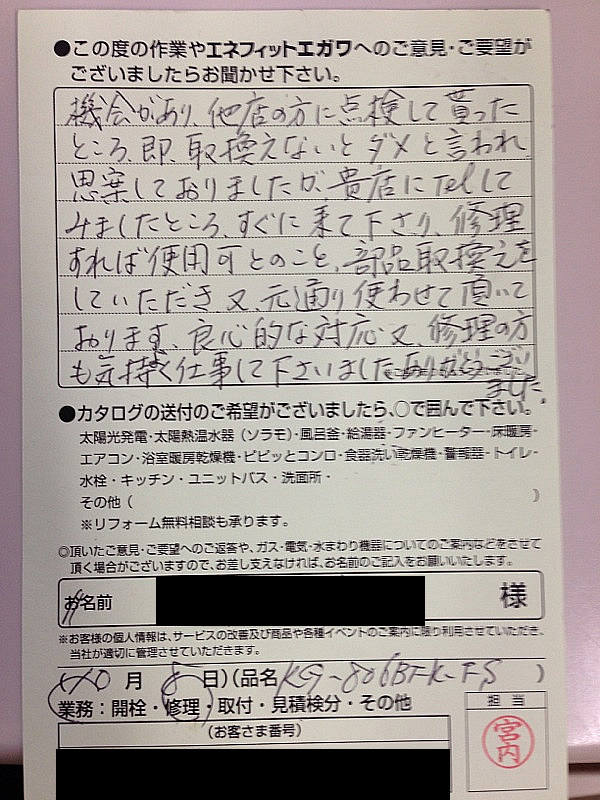 ●この度の作業やエネフィットエガワへのご意見・ご要望が
ございましたらお聞かせ下さい。
機会があり、他店の方に点検して貰った
ところ、即、取換えないとダメと言われ
思案しておりましたが、貴店にTelして
みましたところ、すぐに来て下さり、修理
すれば使用可とのこと、部品取換えを
していただき、又、元通り使わせて頂いて
おります、良心的な対応、又、修理の方
も気持よく仕事して下さいました、ありがとうござい
ました。
●カタログの送付のご希望がございましたら、○で囲んで下さい。
太陽光発電・太陽熱温水器（ソラモ）・風呂釜・給湯器・ファンヒーター・床暖房・
エアコン・浴室暖房乾燥機・ピピッとコンロ・食器洗い乾燥機・警報器・トイレ・
水栓・キッチン・ユニットバス・洗面所・
その他（ ）
※リフォーム無料相談も承ります。
◎頂いたご意見・ご要望へのご返答や、ガス・電気・水まわり機器についてのご案内などをさせて
頂く場合がございますので、お差し支えなければ、お名前のご記入をお願いいたします。
お名前 様
※お客様の個人情報は、サービスの改善及び商品や各種イベントのご案内に限り利用させていただき、
当社が適切に管理させていただきます。
月 8日）（品名 KG-806BFK-FS ）
業務：開栓・修理・取付・見積検分・その他
担当
宮内
（お客さま番号）